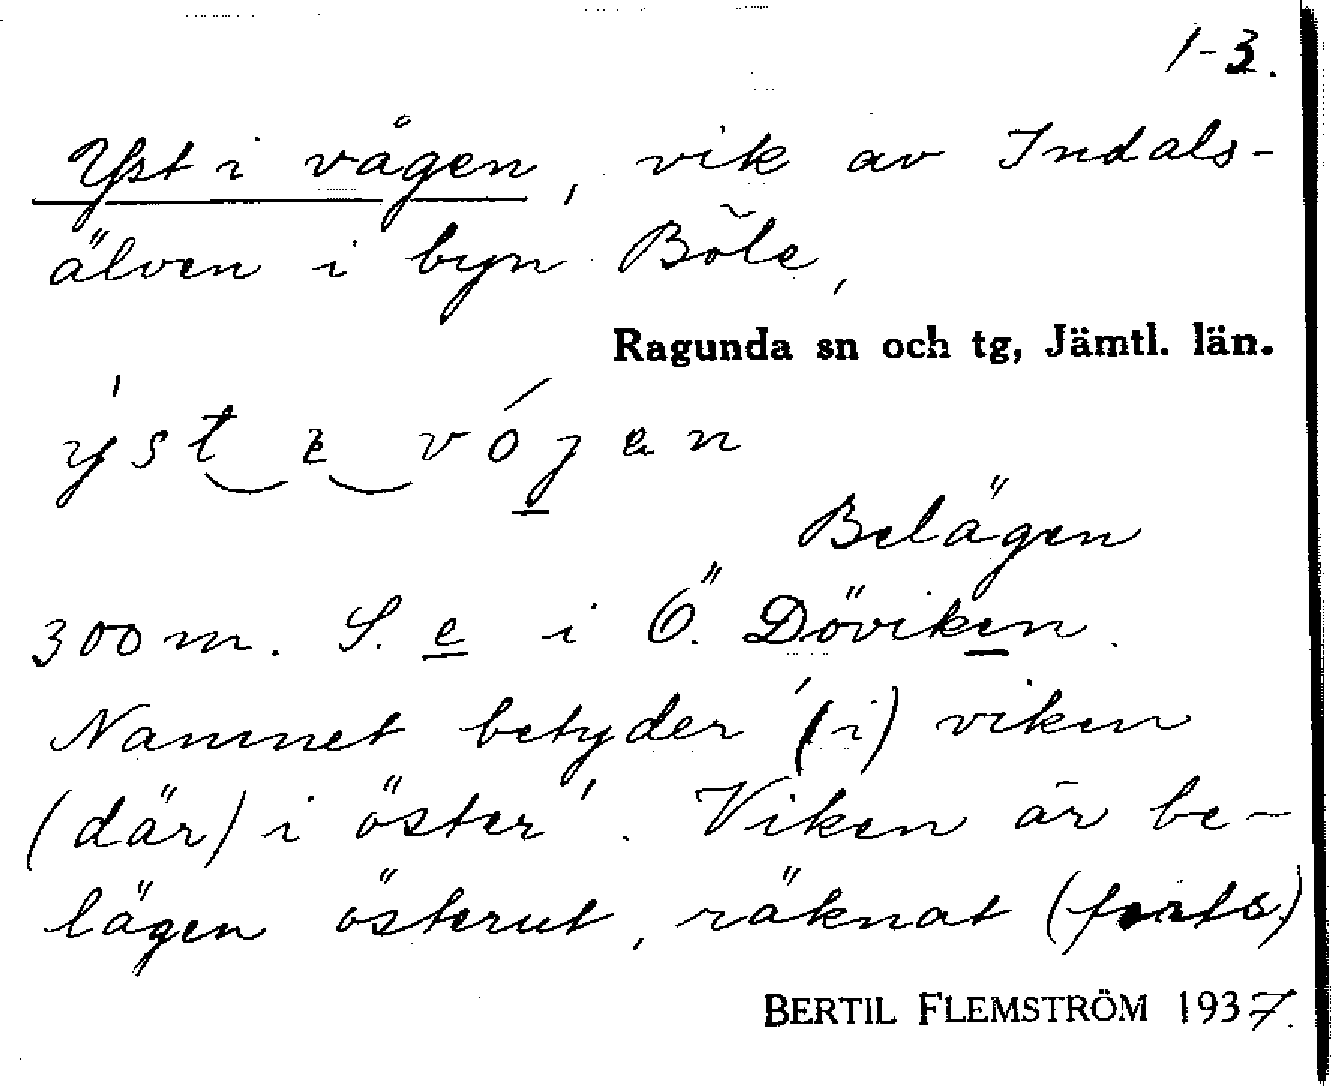 1-3.
Yst i vågen, vik av Indals-
älven i byn Böle,
Ragunda sn och tg, Jämtl. län.
ýst e vó̱jen
Belägen
300 m. S. e i Ö. Döviken.
Namnet betyder '(i) viken
(där) i öster'. Viken är be-
lägen österut, räknat (forts.)
BERTIL FLEMSTRÖM 1937.